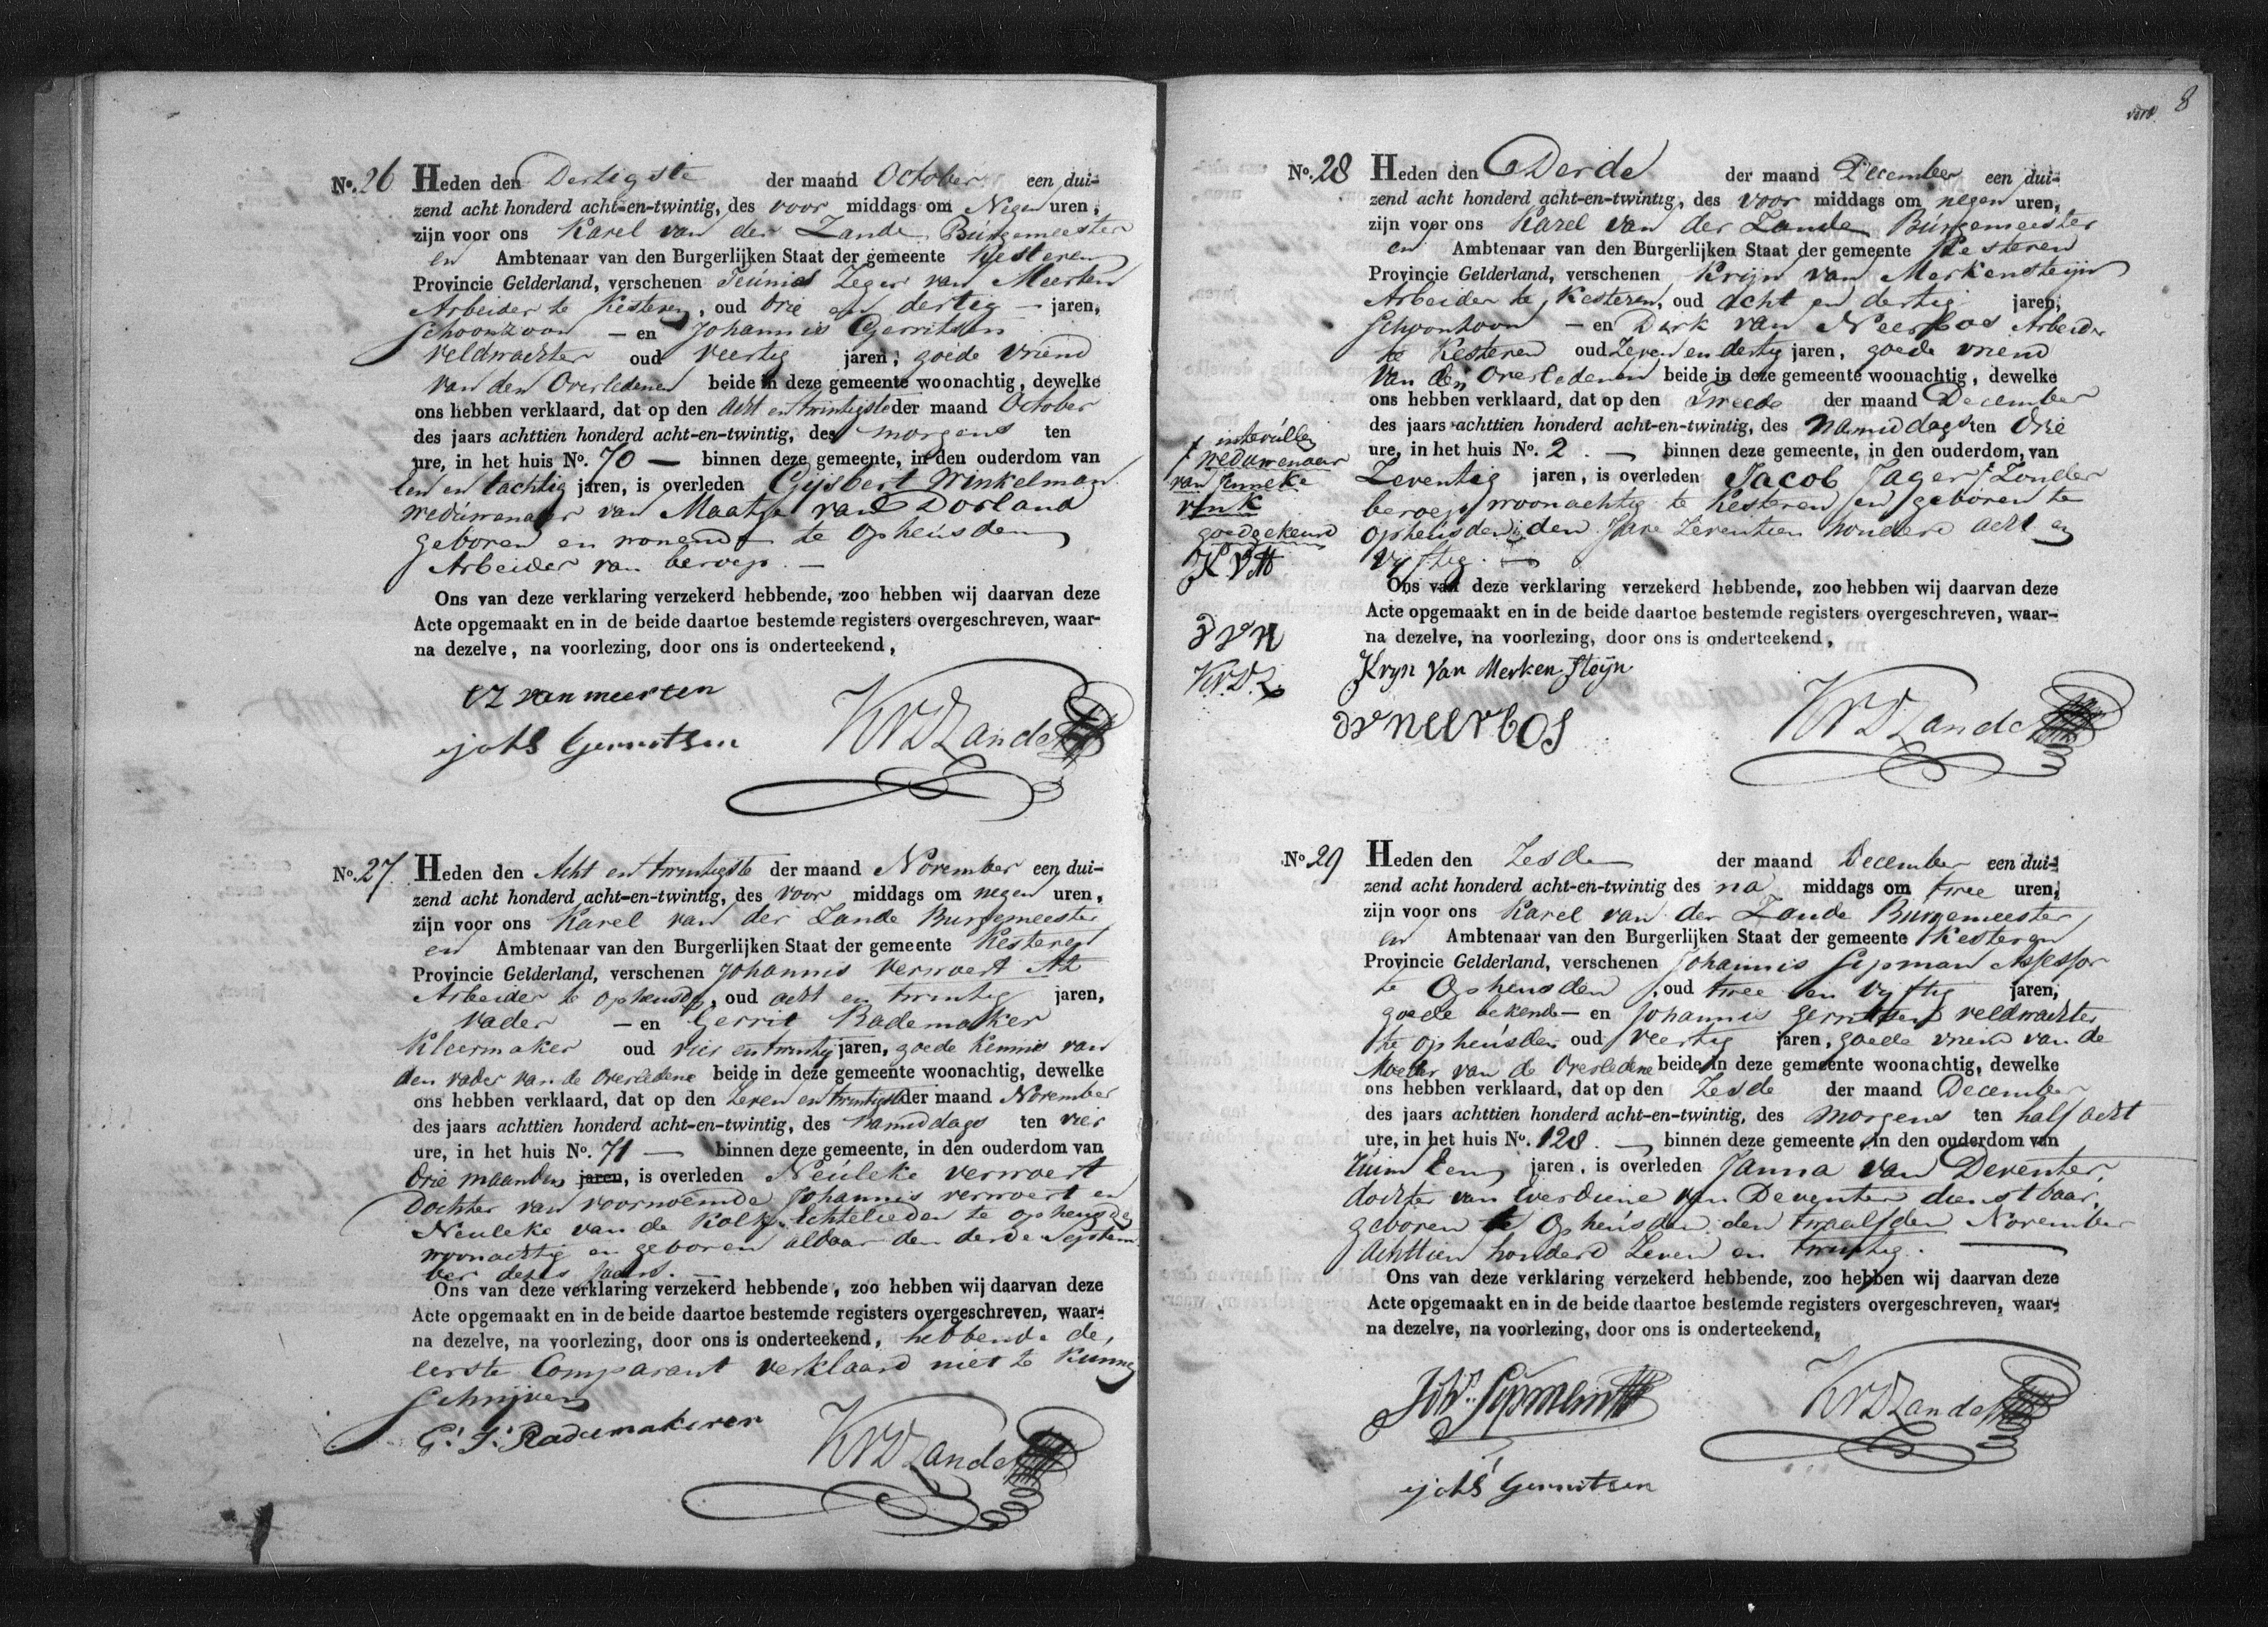 No. 26 Heden den Dertigste der maand October een dui-
zend acht honderd acht-en-twintig, des voor middags om Negen uren,
zijn voor ons Karel van der Zande Burgemeester
en Ambtenaar van den Burgerlijken Staat der gemeente Kesteren
Provincie Gelderland, verschenen Teunis Zeger van Meerten
Arbeider te Kesteren, oud drie en dertig — jaren,
Schoonzoon — en Johannis Gerritsen
veldwachter oud veertig jaren, goede vriend
van den Overledenen beide in deze gemeente woonachtig, dewelke
ons hebben verklaard, dat op den acht en twintigste der maand October
des jaars achttien honderd acht-en-twintig, des morgens ten
ure, in het huis No. 70 — binnen deze gemeente, in den ouderdom van
een en tachtig jaren, is overleden Gijsbert Winkelman
weduwenaar van Maatje van Dorland
geboren en wonende te Opheusden
Arbeider van beroep. —
Ons van deze verklaring verzekerd hebbende, zoo hebben wij daarvan deze
Acte opgemaakt en in de beide daartoe bestemde registers overgeschreven, waar-
na dezelve, na voorlezing, door ons is onderteekend,
van meerten
joh's Gerritsen KVDZande
No. 27 Heden den Acht en twintigste der maand November een dui-
zend acht honderd acht-en-twintig, des voor middags om negen uren,
zijn voor ons Karel van der Zande Burgemeester
en Ambtenaar van den Burgerlijken Staat der gemeente Kesteren
Provincie Gelderland, verschenen Johannis Verwoert
Arbeider te Opheusden, oud acht en twintig jaren,
vader — en Gerrit Rademaker
Kleermaker oud vier en twintig jaren, goede kennis van
den vader van de Overledene beide in deze gemeente woonachtig, dewelke
ons hebben verklaard, dat op den Zeven en twintigste der maand November
des jaars achttien honderd acht-en-twintig, des namiddags ten vier
ure, in het huis No. 71 — binnen deze gemeente, in den ouderdom van
drie maanden jaren, is overleden Neuleke verwoert
Dochter van voornoemde Johannis verwoert en
Neuleke van de Kolk, Echtelieden te opheusden
woonachtig en geboren aldaar den derde Septem-
ber dezes jaars. —
Ons van deze verklaring verzekerd hebbende, zoo hebben wij daarvan deze
Acte opgemaakt en in de beide daartoe bestemde registers overgeschreven, waar-
na dezelve, na voorlezing, door ons is onderteekend, hebbende de
eerste Comparant verklaard niet te kunnen
Schrijven
KVDZande
8
No. 28 Heden den Derde der maand December een dui-
zend acht honderd acht-en-twintig, des voor middags om negen uren,
zijn voor ons Karel van der Zande Burgemeester
en Ambtenaar van den Burgerlijken Staat der gemeente Kesteren
Provincie Gelderland, verschenen Krijn van Merkensteijn
Arbeider te Kesteren, oud acht en dertig jaren,
Schoonzoon — en Dirk van Neerbos Arbeider
te Kesteren oud Zeven en dertig jaren, goede vriend
van den Overledenen beide in deze gemeente woonachtig, dewelke
ons hebben verklaard, dat op den Tweede der maand December
des jaars achttien honderd acht-en-twintig, des namiddags ten drie
ure, in het huis No. 2. — binnen deze gemeente, in den ouderdom, van
Zeventig jaren, is overleden Jacob Jager Zonder
beroep woonachtig te Kesteren en geboren te
Opheusden in den Jare Zeventien honderd acht en
vijftig. —
weduwenaar
van Jenneke
vink
goedgekeurd
K V M
D V N
K.V.D.Z.
Ons van deze verklaring verzekerd hebbende, zoo hebben wij daarvan deze
Acte opgemaakt en in de beide daartoe bestemde registers overgeschreven, waar-
na dezelve, na voorlezing, door ons is onderteekend,
Kryn Van Merkensteijn
DV neerbos KVDZande
No. 29 Heden den Zesde der maand December een dui-
zend acht honderd acht-en-twintig des na middags om twee uren,
zijn voor ons Karel van der Zande Burgemeester
en Ambtenaar van den Burgerlijken Staat der gemeente Kesteren
Provincie Gelderland, verschenen Johannis Sipman Assessor
te Opheusden, oud twee en vijftig jaren,
goede bekende — en Johannis Gerritsen veldwachter
te opheusden oud veertig jaren, goede vriend van de
Moeder van de Overledene beide in deze gemeente woonachtig, dewelke
ons hebben verklaard, dat op den Zesde der maand December
des jaars achttien honderd acht-en-twintig, des morgens ten half acht
ure, in het huis No. 128. — binnen deze gemeente in den ouderdom van
ruim een jaren, is overleden Janna van Deventer,
dochter van Everdiene van Deventer dienstbaar,
geboren te Opheusden den twaalfden November
achttien honderd Zeven en twintig. —
Ons van deze verklaring verzekerd hebbende, zoo hebben wij daarvan deze
Acte opgemaakt en in de beide daartoe bestemde registers overgeschreven, waar-
na dezelve, na voorlezing, door ons is onderteekend,
KVDZande
joh's Gerritsen